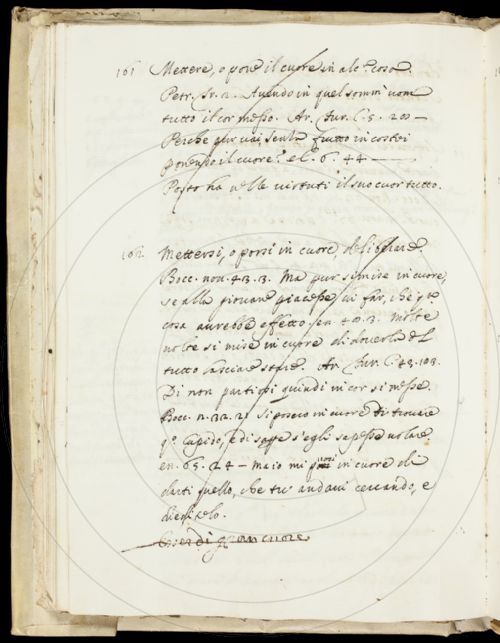 161 Mettere, o porre il cuore in alc.ª cosa.
Petr. Avendo in quel somm' uom
tutto il cor messo. Ar. Fur. C. 5.
Perche pur vai, senza frutto in costei
ponendo il cuore? el. 6. 44 —
Posto ha nelle virtuti il suo cuor tutto.
162 Mettersi, o porsi in cuore, deliberare.
Bocc. nov. 43. 3. Ma pur si mise in cuore,
se alla giovane piacesse di far, che q.ta
cosa avrebbe effetto. en. Molte
volte si mise in cuore di doverla del
tutto lasciare stare. Ar. Fur. C. 43. 103.
Di non partirsi quindi in cor si messe.
Bocc. n. 32. 21 si posero in cuore di trovare
q.º Cupido, e di sapere s'egli sapesse volare
en. 65. 24 — ma io mi posi in cuore di
darti quello, che tu andavi cercando, e
dieditelo.
Esser di gran cuore